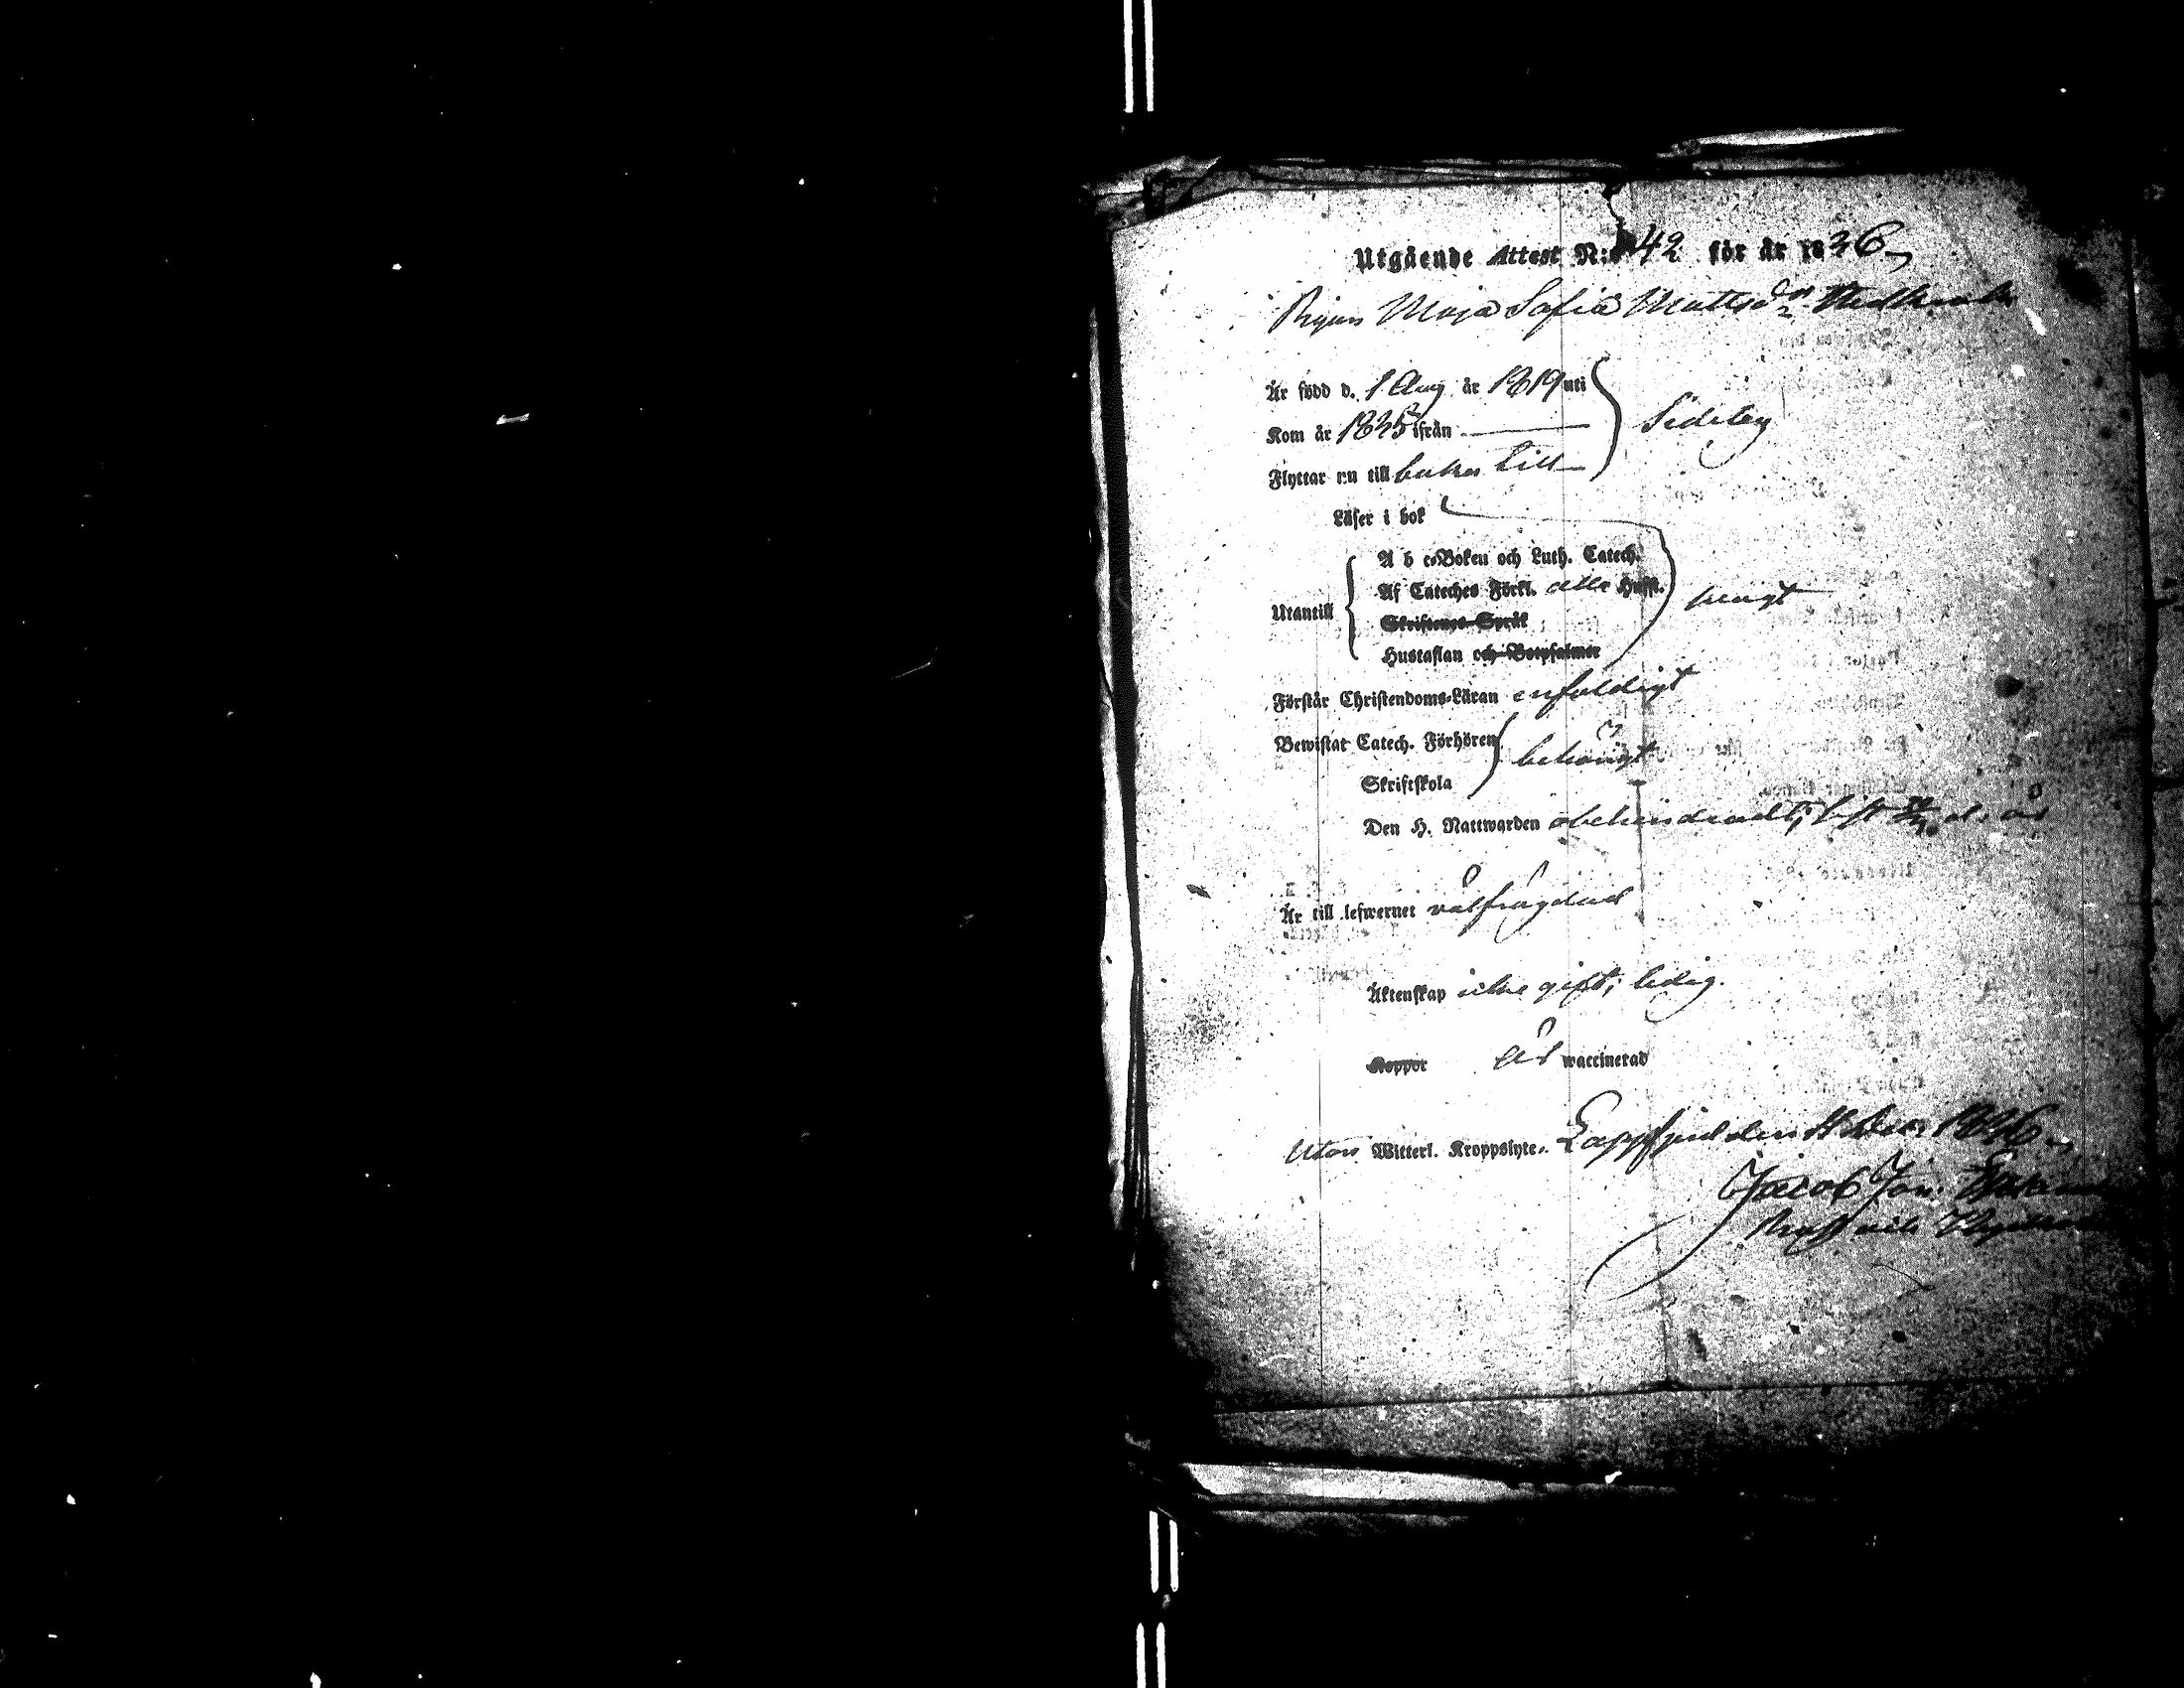 Utgående Attest N:o 42 för år 1836
Pigan Maja Sofia Mattsdr
Är född d. 1 Aug. år 1819 uti
Kom år 1835 ifrån — Sideby
Flyttar nu till bakas till
Läser i bok
A b c-Boken och Luth. Catech.
Af Cateches Förkl. alla Hufst.
Utantill
Skriftenes Språk
Hustaflan och Botpsalmer
Förstår Christendoms-Läran enfaldigt
Bewistat Catech. Förhören
behörigt
Skriftskola
Den H. Nattwarden obehindradt, d. år
Är till lefwernet välfrägdad
Äktenskap icke gift; ledig.
Koppor är waccinerad
Utan Witterl. Kroppslyte. Lappfjerd den Dec. 1836
Jacob Joh.